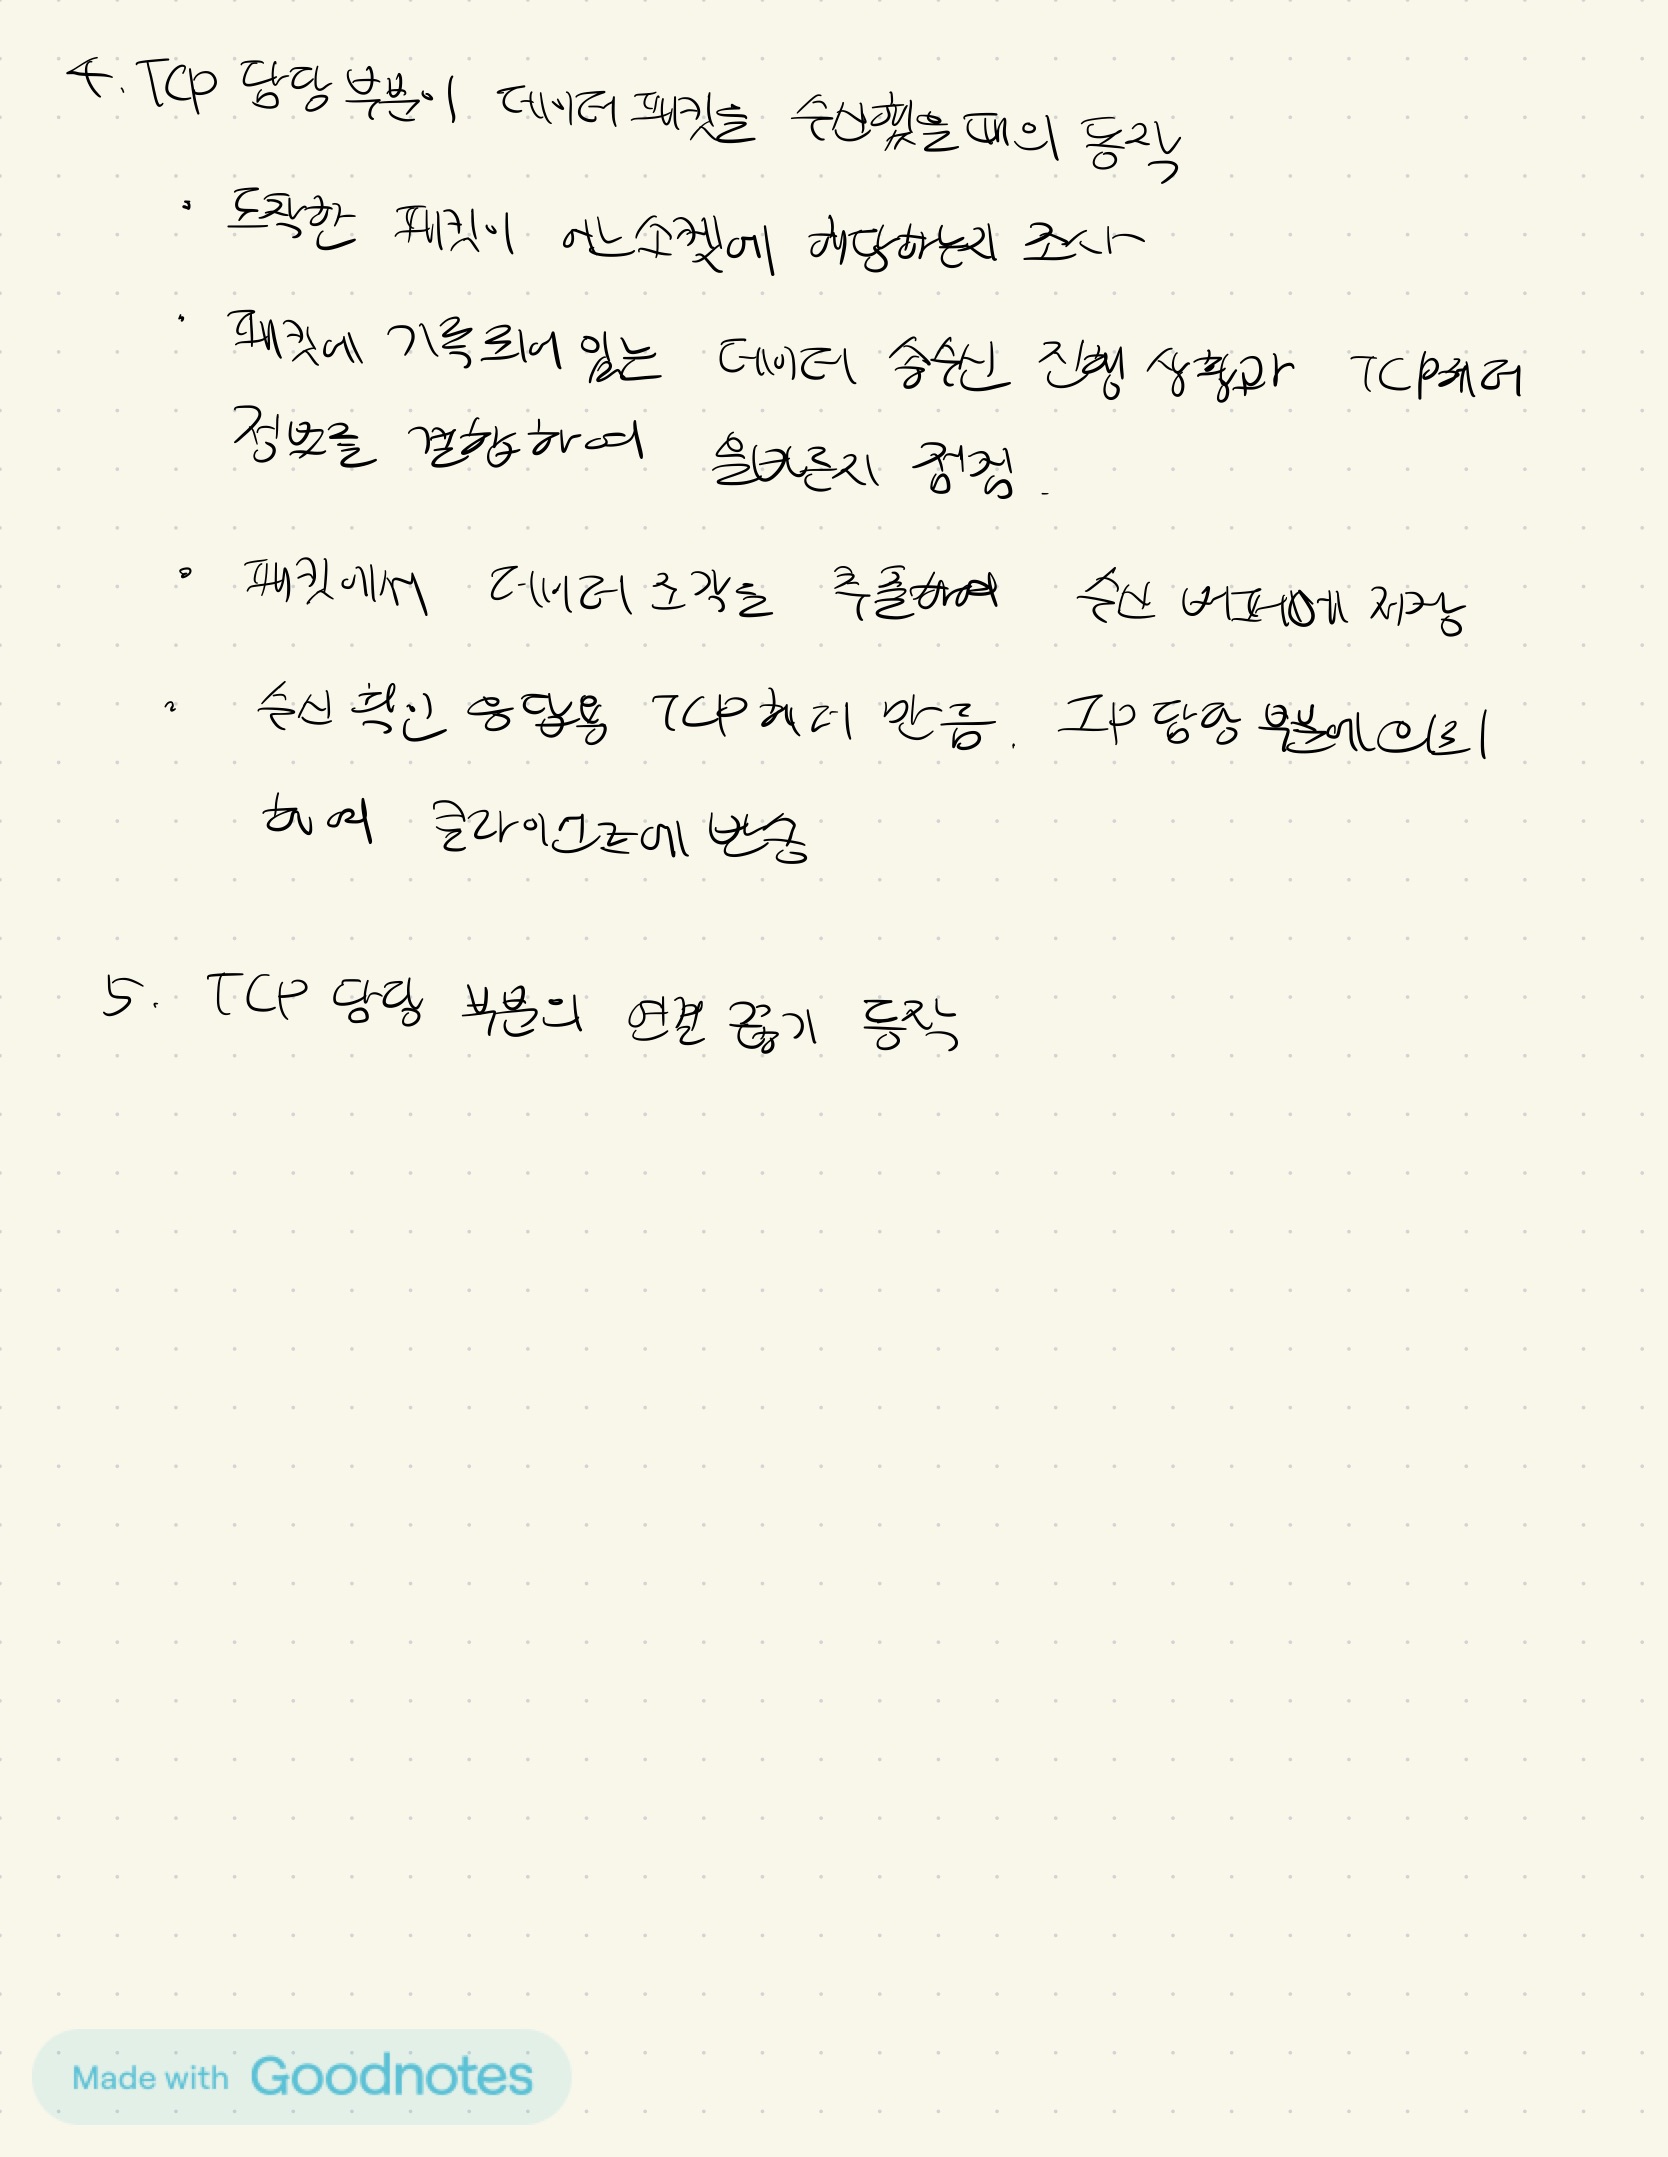 4. TCP 담당 부분이 데이터 패킷을 수신했을 때의 동작
· 도착한 패킷이 어느 소켓에 해당하는지 조사
· 패킷에 기록되어 있는 데이터 송수신 진행 상황과 TCP헤더
정보를 결합하여 올바른지 점검.
· 패킷에서 데이터 조각을 추출하여 수신 버퍼에 저장
· 수신 확인 응답용 TCP 헤더 만듬. IP 담당 부분에 의뢰
하여 클라이언트에 반송
5. TCP 담당 부분의 연결 끊기 동작
Made with Goodnotes